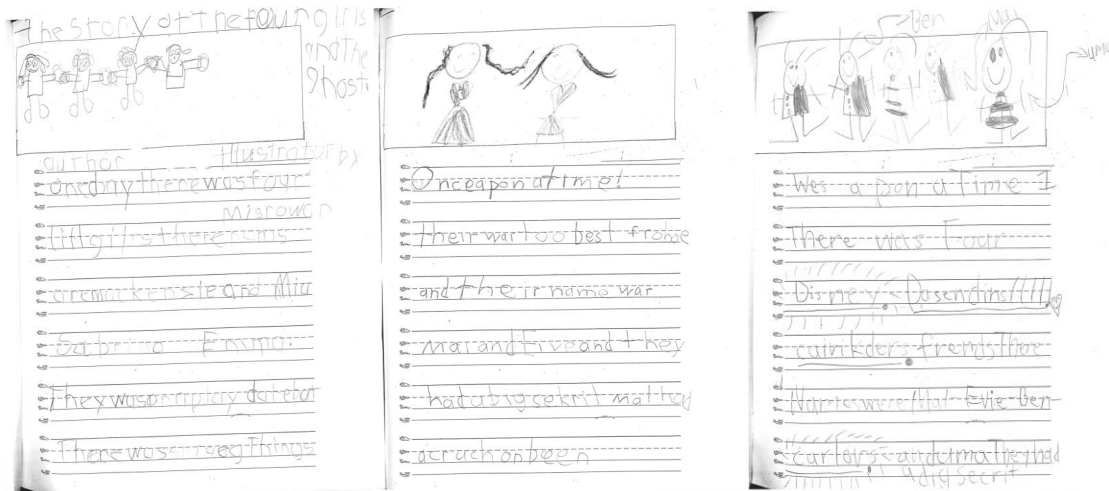 the story of the four girls
and the
ghost
author Illustrator by
one day there was four
Misrowan
littl girls there nams
are mackensie and Mia
Sabrina Emma.
They was
There was things
Once apon a time!
their war too best
and their name war
Mal and Evie and they
had a big sekrit mal had
a crach on been
Ben
Mal
uma
Wes a pon a Time I
There was Four
Disney Dasendins!!!!!
cairikders frends There
Names were Mal Evie Ben
carlos and uma They had
a big secrit